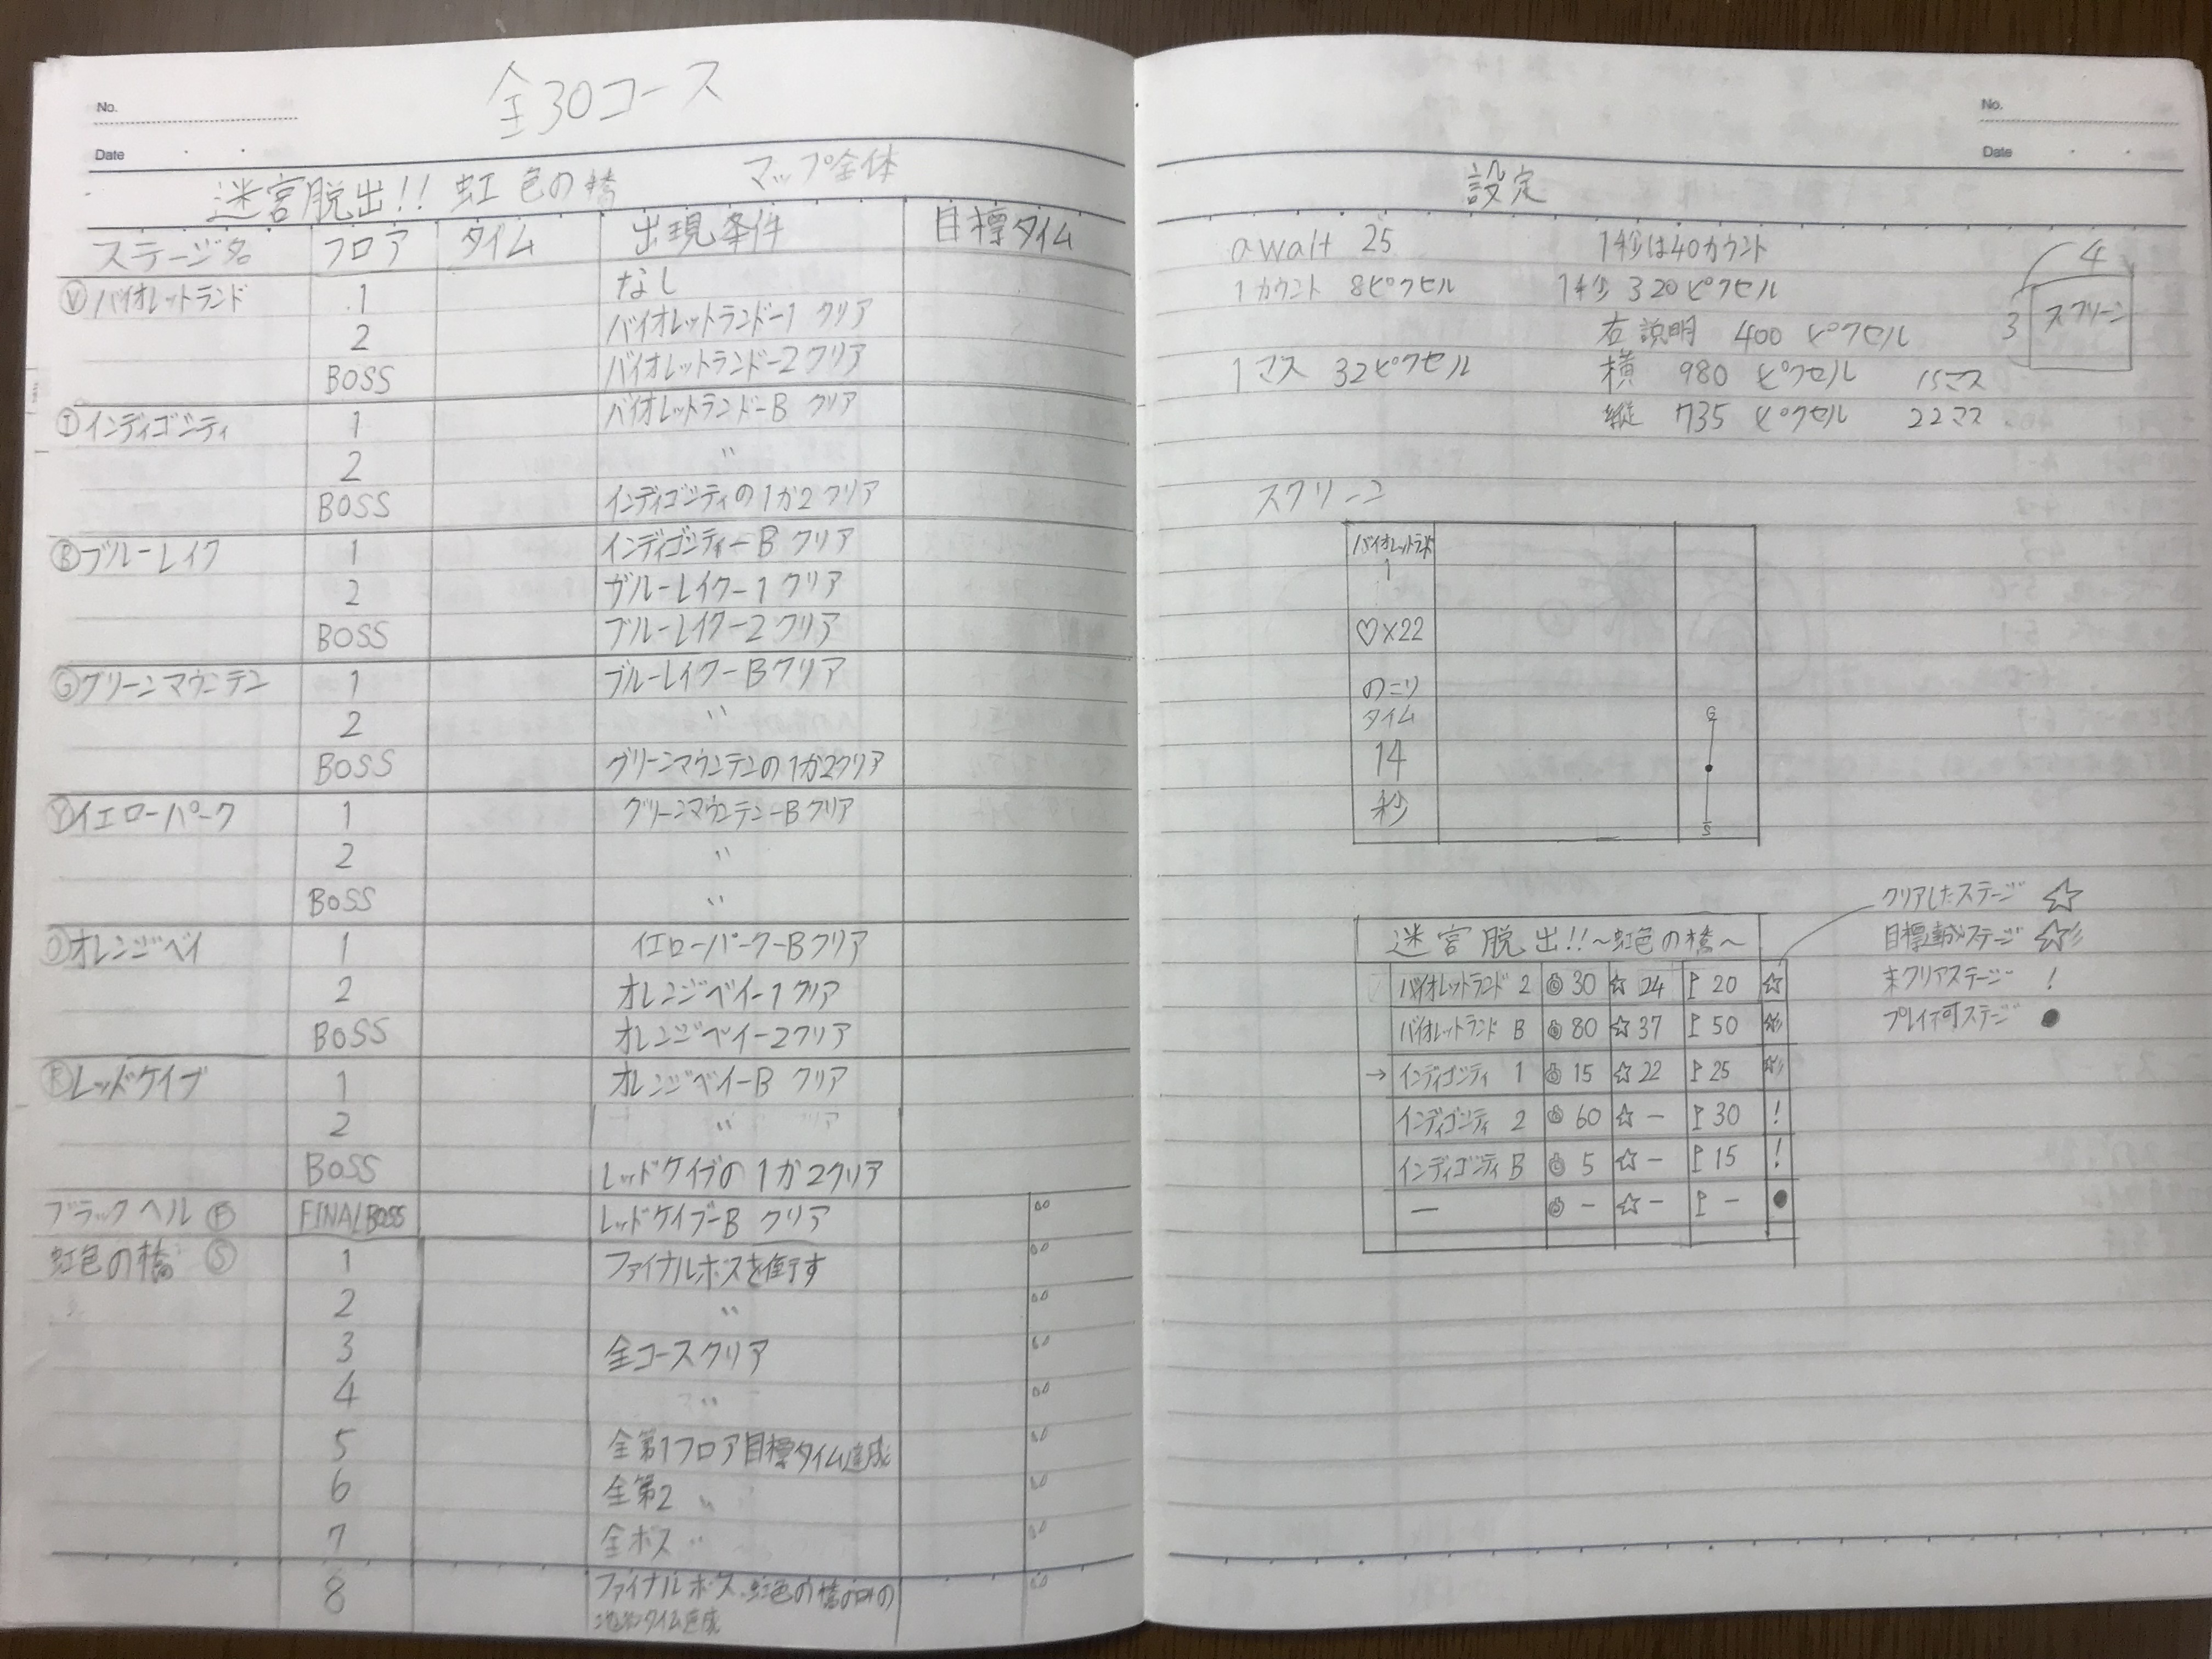 No.
Date
全30コース
迷宮脱出!! 虹色の橋 マップ全体
ステージ名 フロア タイム 出現条件 目標タイム
Ⓥバイオレットランド 1 なし
2 バイオレットランドー1 クリア
BOSS バイオレットランドー2クリア
Ⓘインディゴシティ 1 バイオレットランドーB クリア
2 〃
BOSS インディゴシティの1か2クリア
Ⓑブルーレイク 1 インディゴシティーB クリア
2 ブルーレイクー1 クリア
BOSS ブルーレイクー2 クリア
Ⓖグリーンマウンテン 1 ブルーレイクーBクリア
2 〃
BOSS グリーンマウンテンの1か2クリア
Ⓨイエローパーク 1 グリーンマウンテンーBクリア
2 〃
BOSS 〃
Ⓞオレンジベイ 1 イエローパークーBクリア
2 オレンジベイー1クリア
BOSS オレンジベイー2クリア
Ⓡレッドケイブ 1 オレンジベイーB クリア
2 〃
BOSS レッドケイブの1か2クリア
ブラックヘル Ⓕ FINALBOSS レッドケイブーB クリア
虹色の橋 Ⓢ 1 ファイナルボスを倒す
2 〃
3 全コースクリア
4 〃
5 全第1フロア目標タイム達成
6 全第2 〃
7 全ボス 〃
8 ファイナルボス、虹色の橋の
タイム達成
No.
Date
設定
await 25 1秒は40カウント
1カウント 8ピクセル 1秒 320ピクセル
右説明 400 ピクセル
1マス 32ピクセル 横 980 ピクセル 15マス
縦 735 ピクセル 22マス
4
3 スクリーン
スクリーン
バイオレットランド
1
♡×22
のこり
タイム
14
秒
G
S
迷宮脱出!!～虹色の橋～
バイオレットランド 2 30 ☆ 24 20 ☆
バイオレットランド B 80 ☆37 50 ☆
→ インディゴシティ 1 15 ☆22 25 ☆
インディゴシティ 2 60 ☆ー 30 !
インディゴシティ B 5 ☆ー 15 !
ー ー ☆ー ー ●
クリアしたステージ ☆
目標達成ステージ ☆
未クリアステージ !
プレイ不可ステージ ●